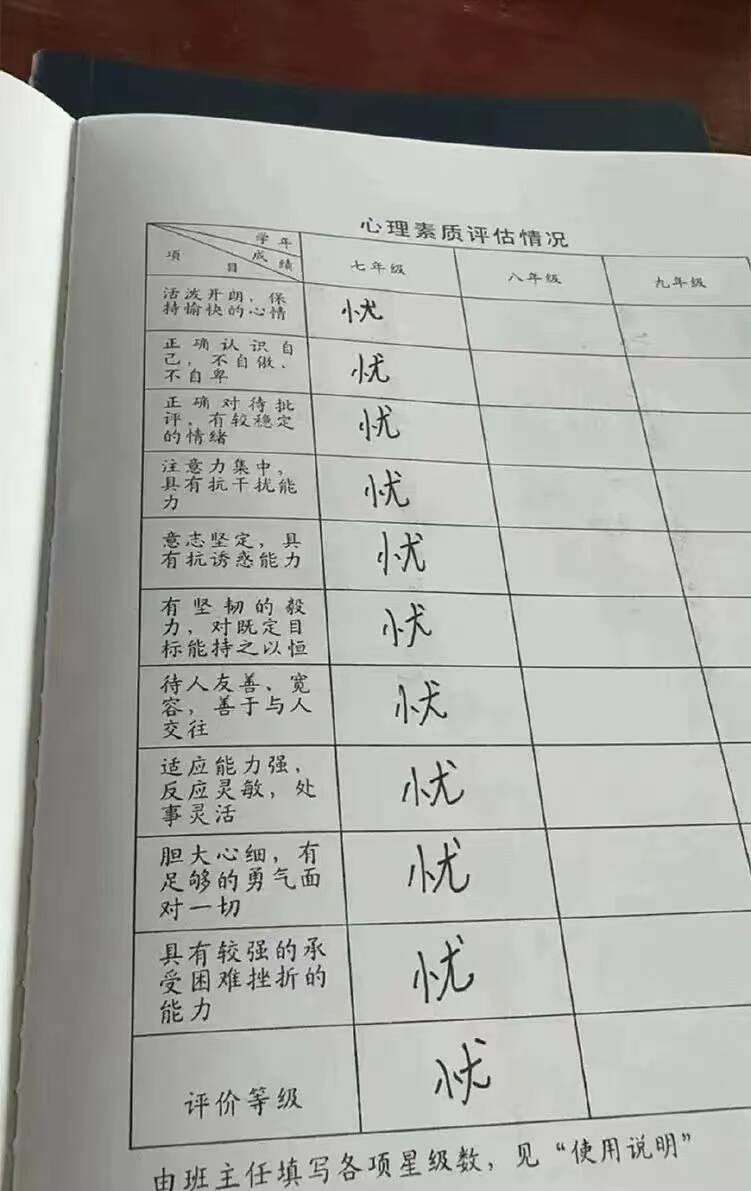 心理素质评估情况
学年
成绩
项目
七年级
八年级
九年级
活泼开朗，保
持愉快的心情
忧
正确认识自
己，不自傲、
不自卑
忧
正确对待批
评，有较稳定
的情绪
忧
注意力集中，
具有抗干扰能
力
忧
意志坚定，具
有抗诱惑能力
忧
有坚韧的毅
力，对既定目
标能持之以恒
忧
待人友善、宽
容，善于与人
交往
忧
适应能力强，
反应灵敏，处
事灵活
忧
胆大心细，有
足够的勇气面
对一切
忧
具有较强的承
受困难挫折的
能力
忧
评价等级
忧
由班主任填写各项星级数，见“使用说明”